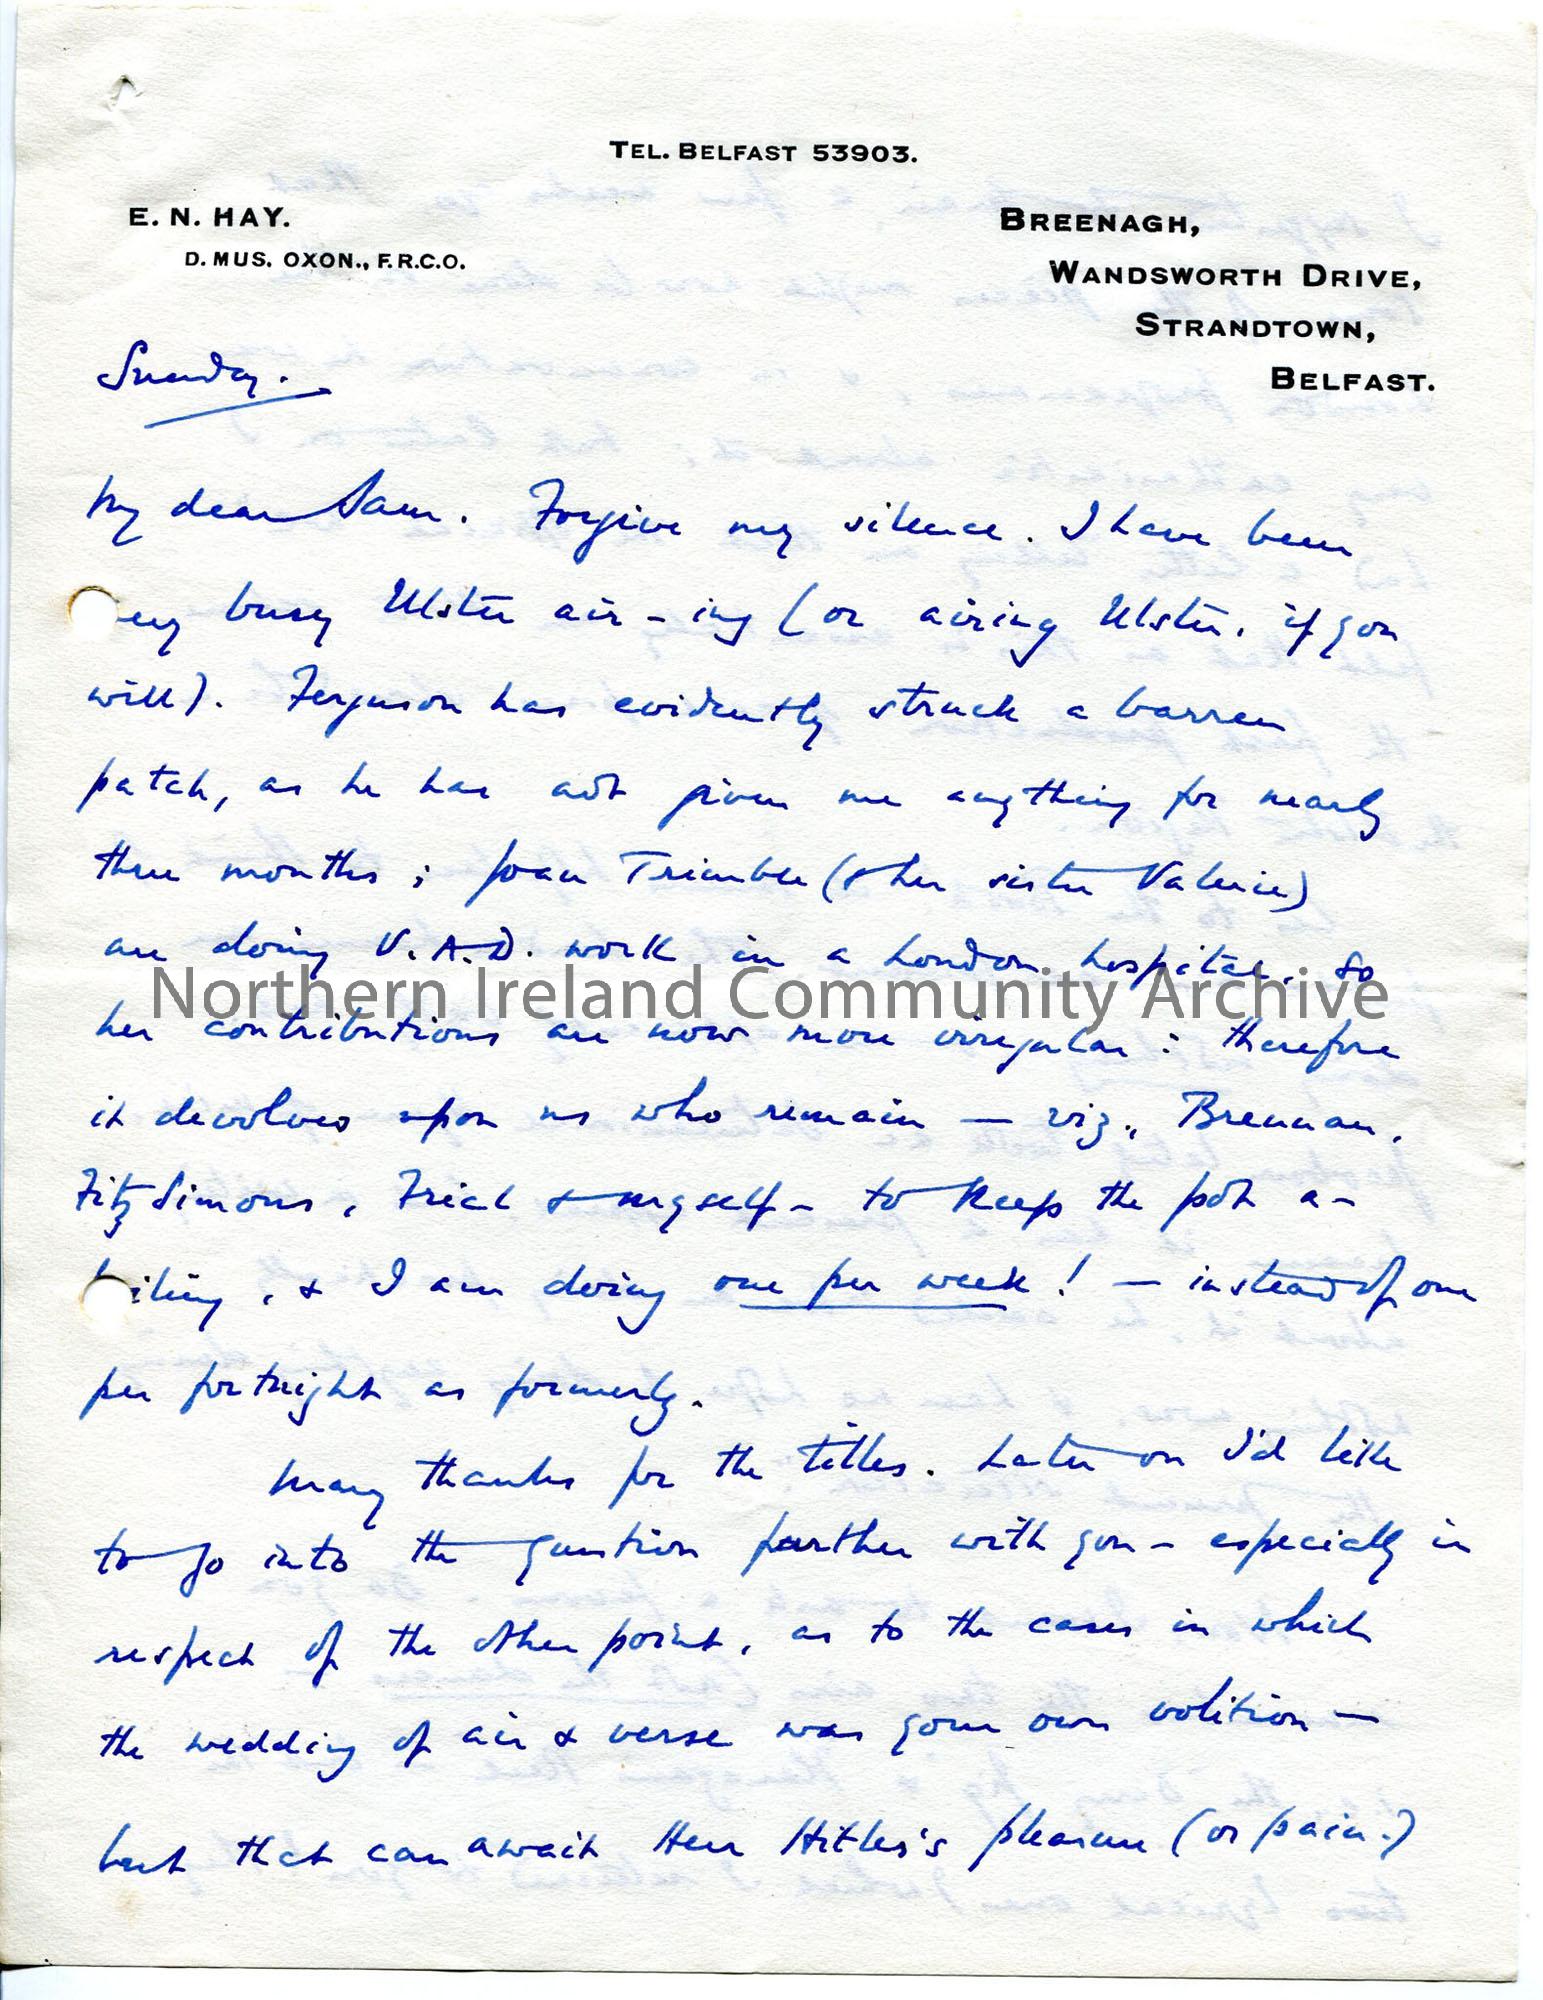 TEL. BELFAST 53903.
E. N. HAY.
D. MUS. OXON., F.R.C.O.
BREENAGH,
WANDSWORTH DRIVE,
STRANDTOWN,
BELFAST.
Sunday.
My dear Sam. Forgive my silence. I have been
very busy Ulster air-ing (or airing Ulster, if you
will). Ferguson has evidently struck a barren
patch, as he has not given me anything for nearly
three months; Joan Trimble (& her sister Valerie)
are doing V.A.D. work in a London hospital, so
Northern Ireland Community Archive
her contributions are now more irregular: therefore
it devolves upon us who remain — viz., Brennan,
FitzSimons, Friel & myself - to keep the pot a-
boiling, & I am doing one per week! — instead of one
per fortnight as formerly.
Many thanks for the titles. Later on I'd like
to go into the question further with you - especially in
respect of the other point, as to the cases in which
the wedding of air & verse was your own volition —
but that can await Herr Hitler's pleasure (or pain.)